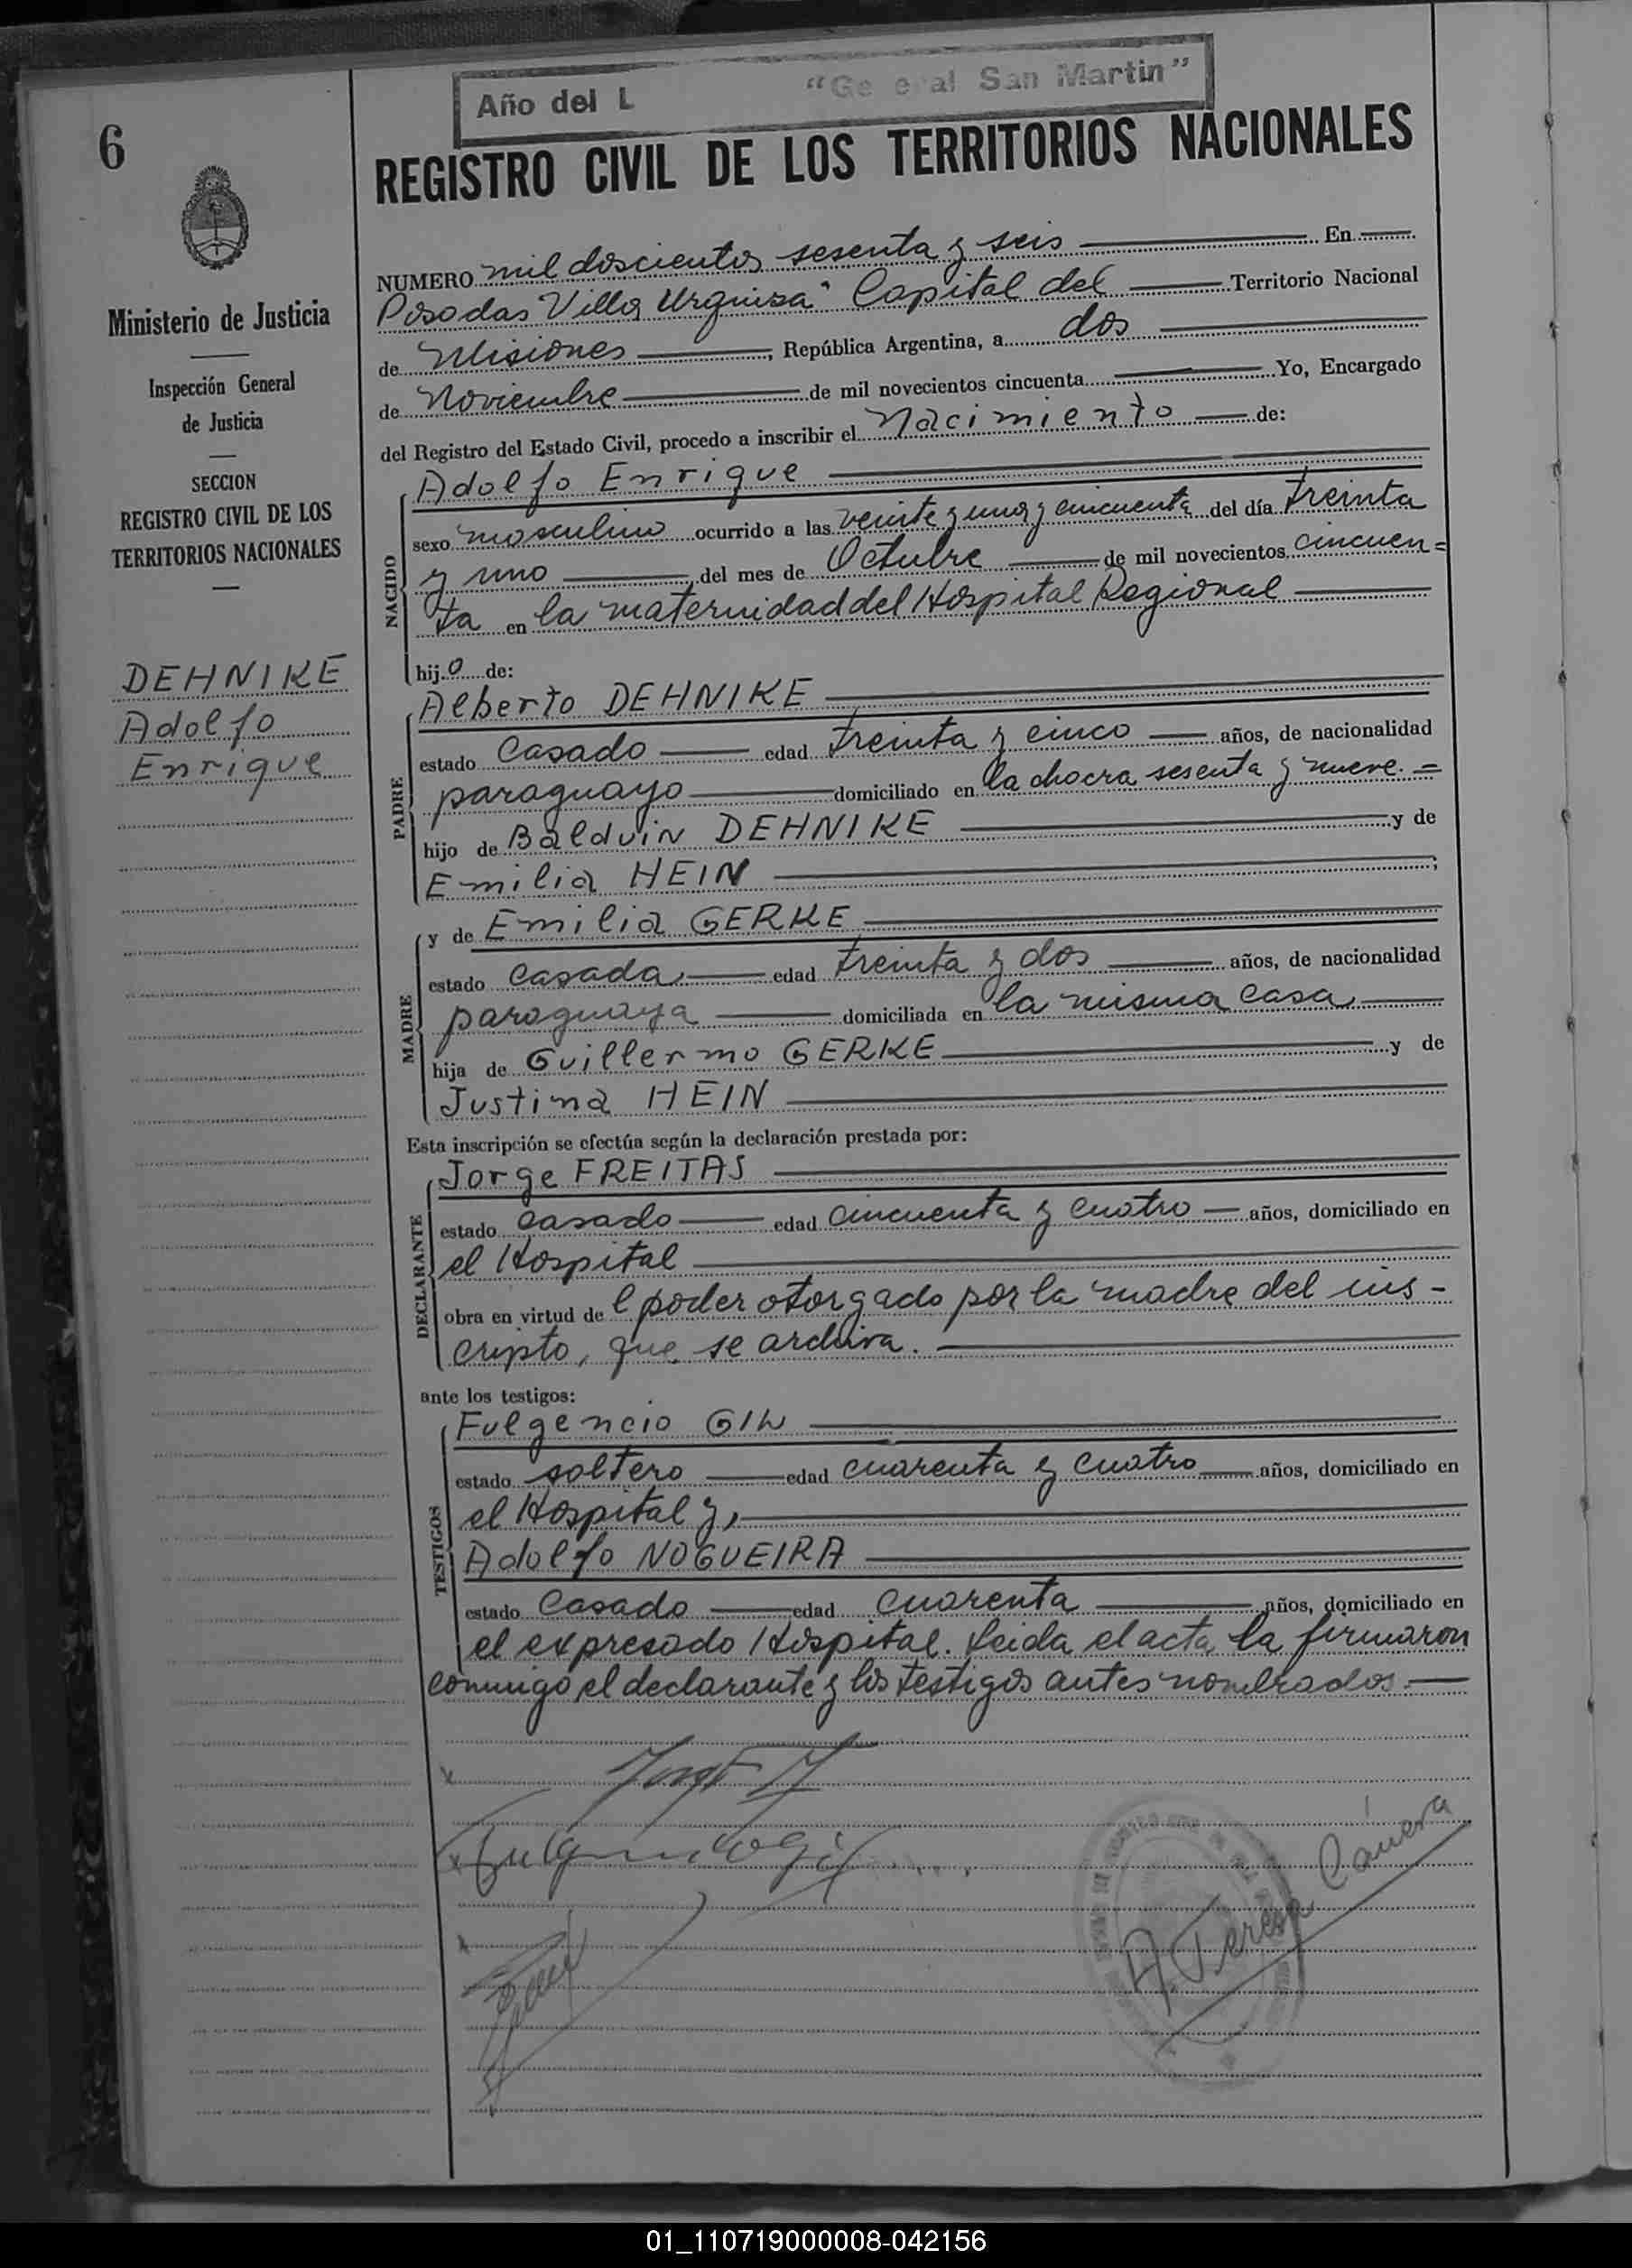 Año del L "Ge eral San Martin"
6
REGISTRO CIVIL DE LOS TERRITORIOS NACIONALES
Ministerio de Justicia
Inspección General
de Justicia
SECCION
REGISTRO CIVIL DE LOS
TERRITORIOS NACIONALES
DEHNIKE
Adolfo
Enrique
NUMERO mil doscientos sesenta y seis En
Posadas "Villa Urquiza" Capital del Territorio Nacional
de Misiones, República Argentina, a dos
de Noviembre de mil novecientos cincuenta Yo, Encargado
del Registro del Estado Civil, procedo a inscribir el Nacimiento de:
NACIDO
Adolfo Enrique
sexo masculino ocurrido a las veinte y una y cincuenta del día treinta
y uno, del mes de Octubre de mil novecientos cincuen=
ta en la maternidad del Hospital Regional
hij o de:
PADRE
Alberto DEHNIKE
estado Casado edad treinta y cinco años, de nacionalidad
paraguayo domiciliado en la chacra sesenta y nueve.=
hijo de Balduin DEHNIKE y de
Emilia HEIN;
MADRE
y de Emilia GERKE
estado casada, edad treinta y dos años, de nacionalidad
paraguaya domiciliada en la misma casa,
hija de Guillermo GERKE y de
Justina HEIN
Esta inscripción se efectúa según la declaración prestada por:
DECLARANTE
Jorge FREITAS
estado casado edad cincuenta y cuatro años, domiciliado en
el Hospital
obra en virtud de l poder otorgado por la madre del ins-
cripto, que se archiva.
ante los testigos:
TESTIGOS
Fulgencio GIL
estado soltero edad cuarenta y cuatro años, domiciliado en
el Hospital y,
Adolfo NOGUEIRA
estado Casado edad cuarenta años, domiciliado en
el expresado Hospital. Leida el acta, la firmaron
conmigo el declarante y los testigos antes nombrados.
Fulgencio Gil
A. Teresa Cámera
01_110719000008-042156